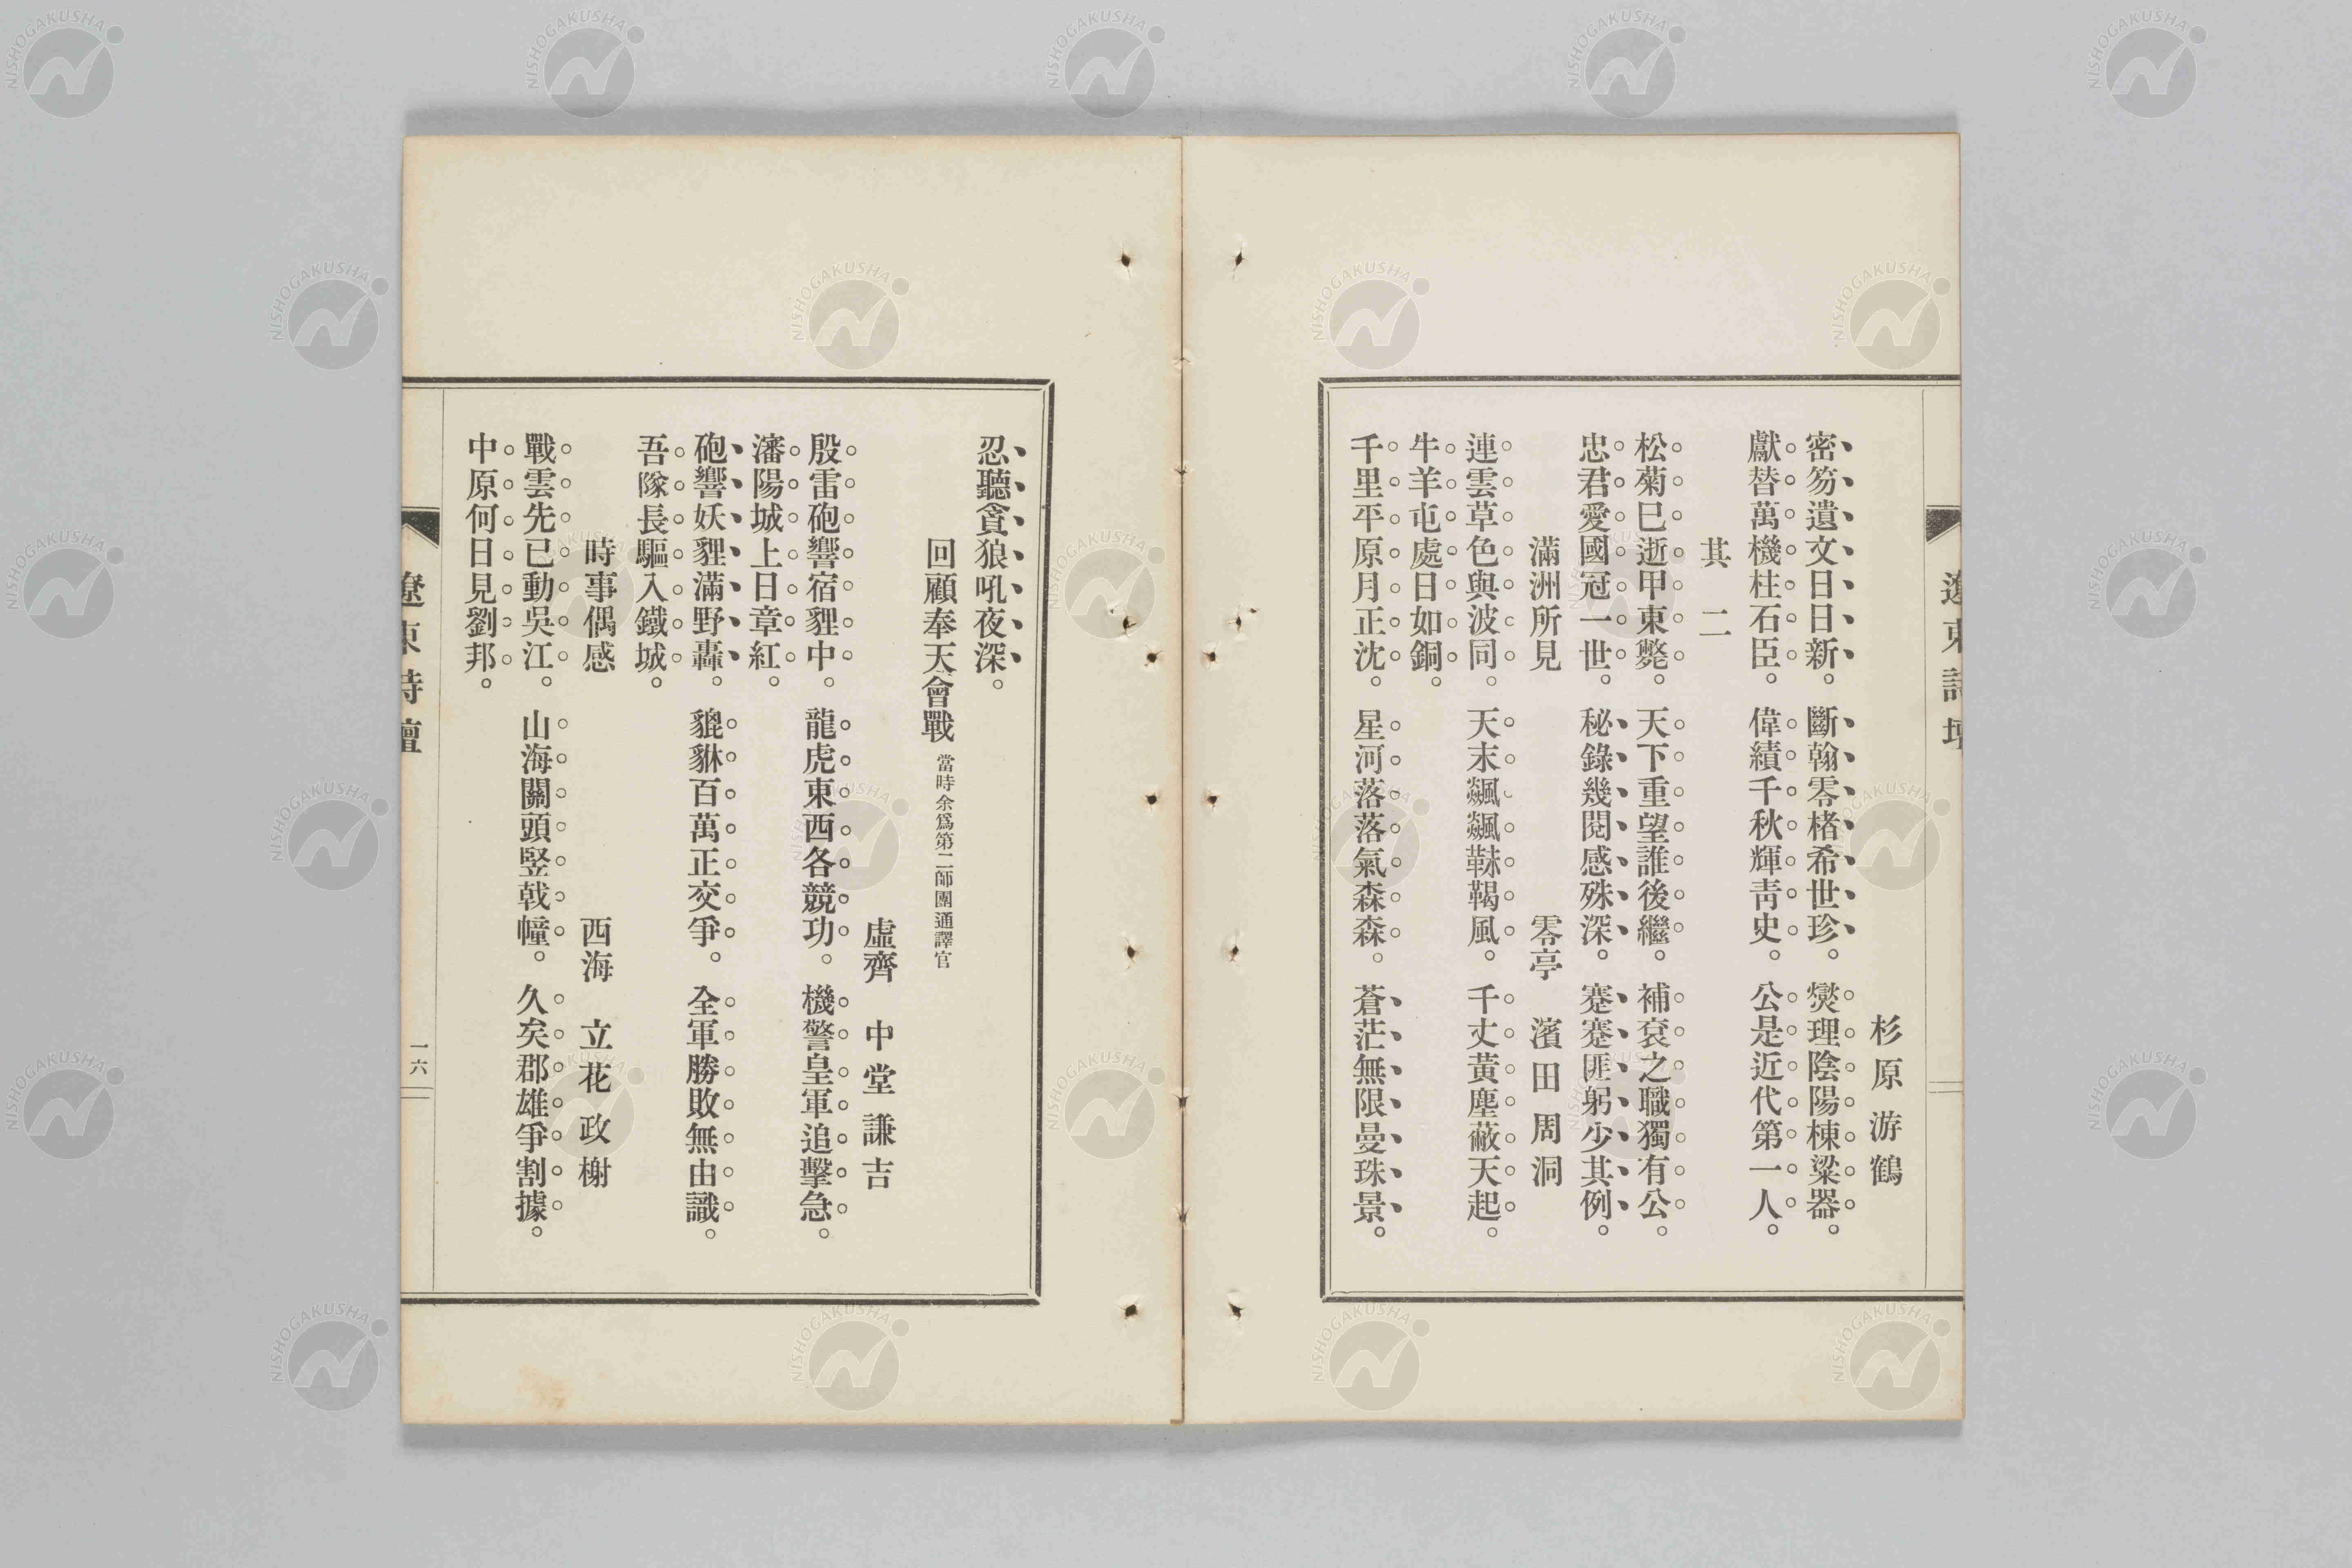 杉原游鶴
密笏遺文日日新。斷翰零楮希世珍。爕理陰陽棟梁器。
獻替萬機柱石臣。偉績千秋輝靑史。公是近代第一人。
其二
松菊已逝甲東斃。天下重望誰後繼。補袞之職獨有公。
忠君愛國冠一世。秘錄幾閱感殊深。蹇蹇匪躬少其例。
滿洲所見
零亭 濱田周洞
連雲草色與波同。天末飆飆靺鞨風。千丈黃塵蔽天起。
牛羊屯處日如銅。
千里平原月正沈。星河落落氣森森。蒼茫無限曼珠景。
遼東詩壇
忍聽貪狼吼夜深。
回顧奉天會戰 當時余爲第二師團通譯官
虛齊 中堂謙吉
殷雷砲響宿貍中。龍虎東西各競功。機警皇軍追擊急。
瀋陽城上日章紅。
砲響妖貍滿野轟。貔貅百萬正交爭。全軍勝敗無由識。
吾隊長驅入鐵城。
時事偶感
西海 立花政樹
戰雲先已動吳江。山海關頭竪戟幢。久矣郡雄爭割據。
中原何日見劉邦。
遼東詩壇
一六
NISHOGAKUSHA